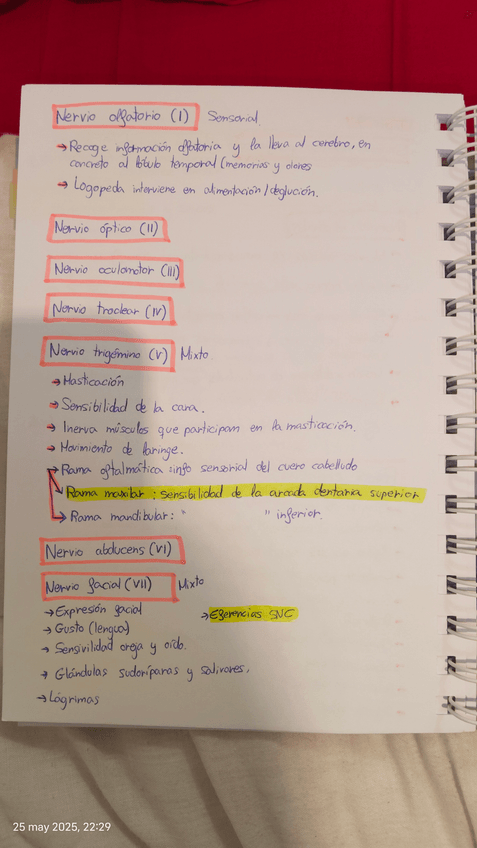 Nervio olfatorio (I) Sensorial.
→ Recoge información olfatoria y la lleva al cerebro, en
concreto al lóbulo temporal (memorias y olores
→ Logopeda interviene en alimentación/deglución.
Nervio óptico (II)
Nervio oculomotor (III)
Nervio troclear (IV)
Nervio trigémino (V) Mixto.
→ Masticación
→ Sensibilidad de la cara.
→ Inerva músculos que participan en la masticación.
→ Movimiento de laringe.
→ Rama oftalmática: info sensorial del cuero cabelludo
→ Rama maxilar: sensibilidad de la arcada dentaria superior
→ Rama mandibular: " " inferior.
Nervio abducens (VI)
Nervio facial (VII) Mixto
→ Expresión facial → Eferencias SNC
→ Gusto (lengua)
→ Sensivilidad oreja y oído.
→ Glándulas sudoríparas y salivares.
→ Lágrimas
25 may 2025, 22:29